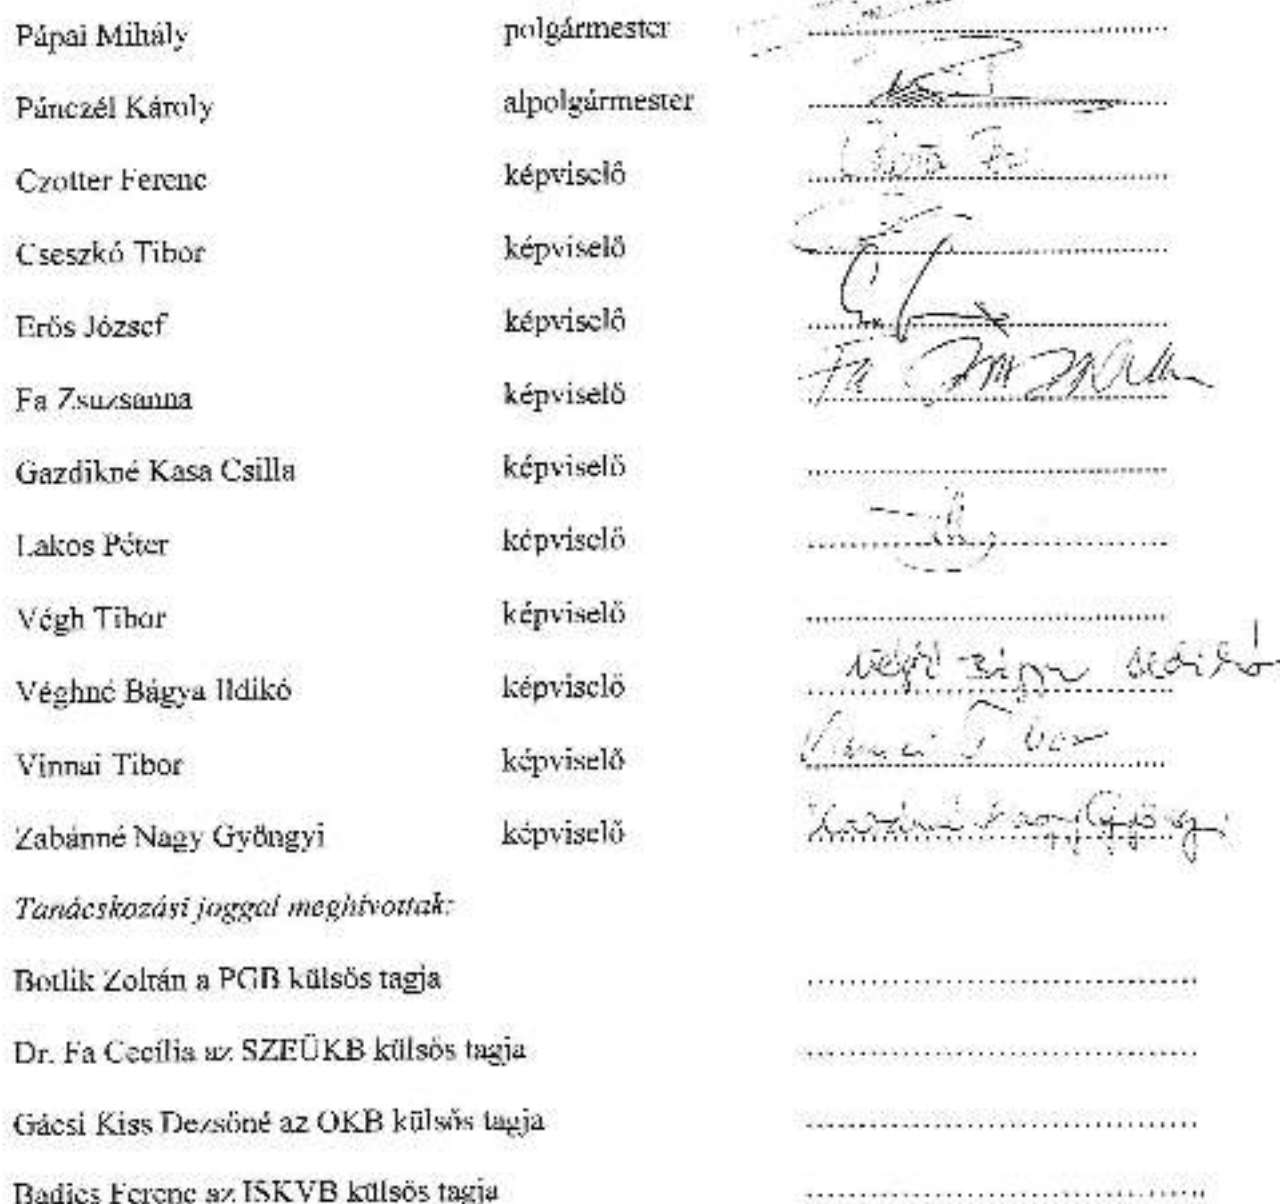 Pápai Mihály polgármester
Pánczél Károly alpolgármester
Czotter Ferenc képviselő
Cseszkó Tibor képviselő
Erős József képviselő
Fa Zsuzsanna képviselő Fa
Gazdikné Kasa Csilla képviselő
Lakos Péter képviselő
Végh Tibor képviselő
Véghné Bágya Ildikó képviselő
Vinnai Tibor képviselő Vinnai Tibor
Zabánné Nagy Gyöngyi képviselő Zabánné Nagy Gyöngyi
Tanácskozási joggal meghívottak:
Botlik Zoltán a PGB külsős tagja
Dr. Fa Cecília az SZEÜKB külsős tagja
Gácsi Kiss Dezsőné az OKB külsős tagja
Badics Ferenc az ISKVB külsős tagja